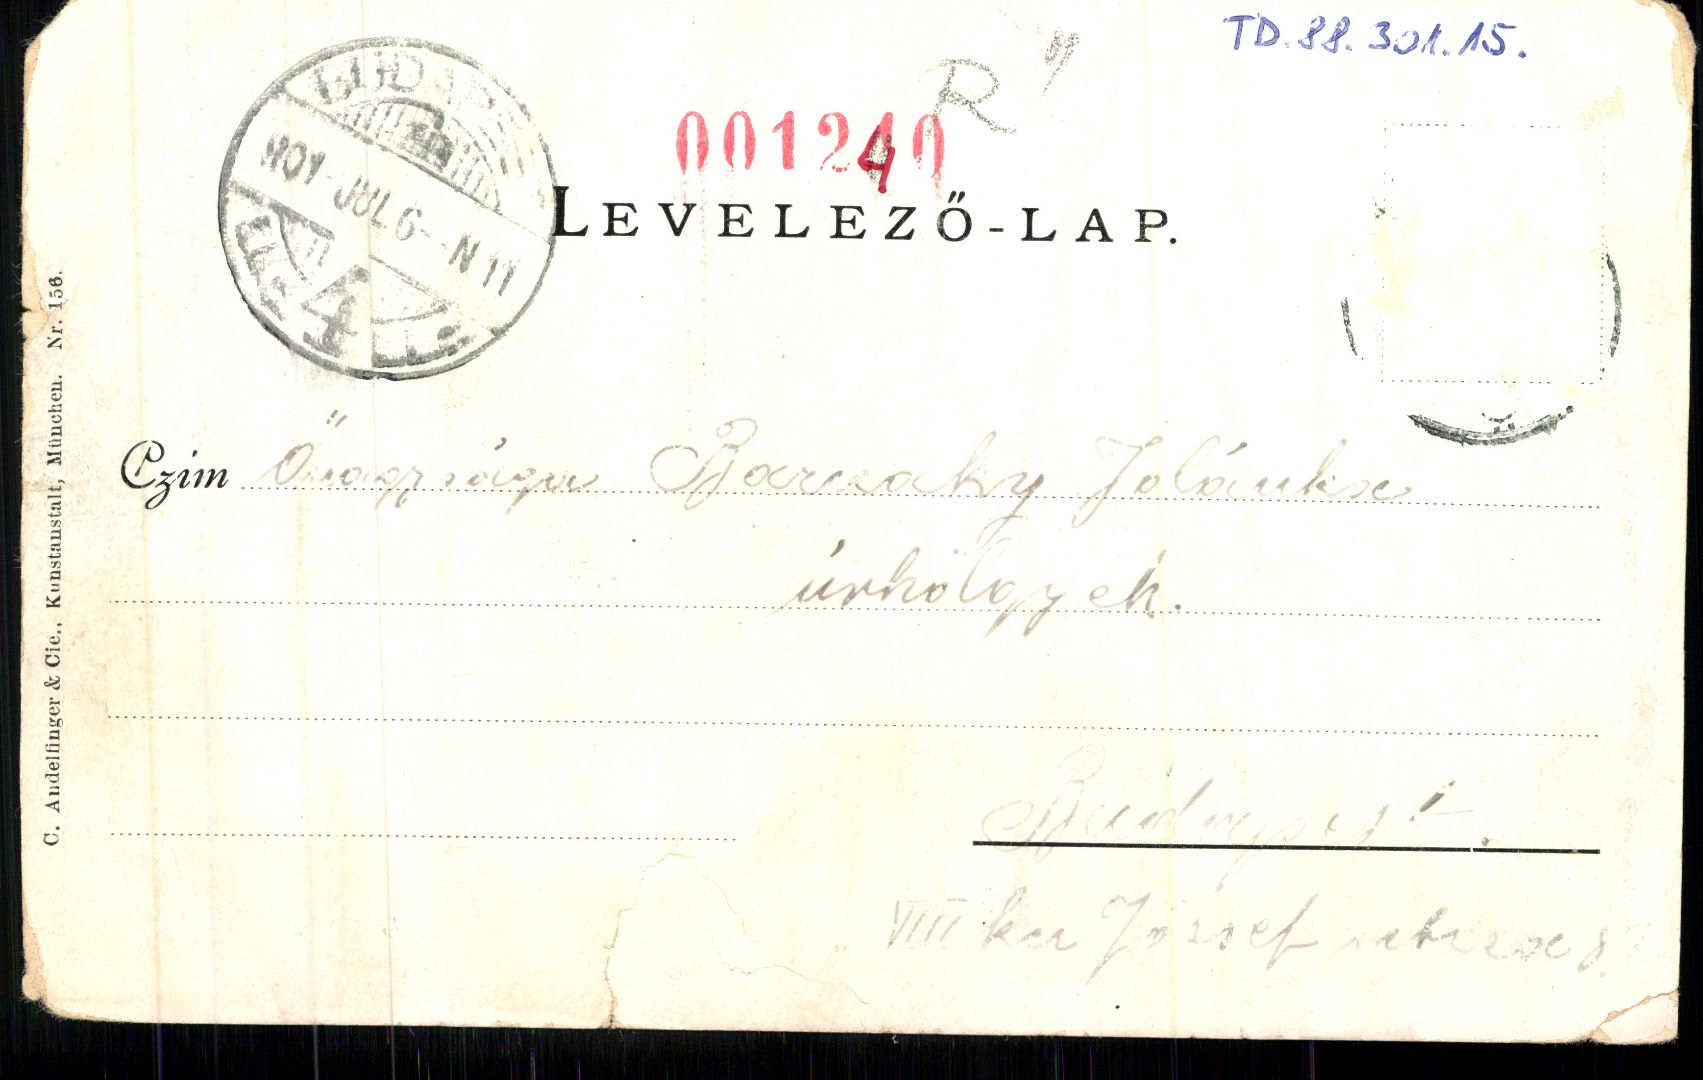 TD.88.301.15.
R
001240
4
BUDAPEST
901 JUL 6 - N 11
LEVELEZŐ-LAP.
Czim Őnagysága Barczaky Jolánka
úrhölgynek.
Budapest.
VIII ker József utcza 8
C. Andelfinger & Cie., Kunstanstalt, München. Nr. 156.